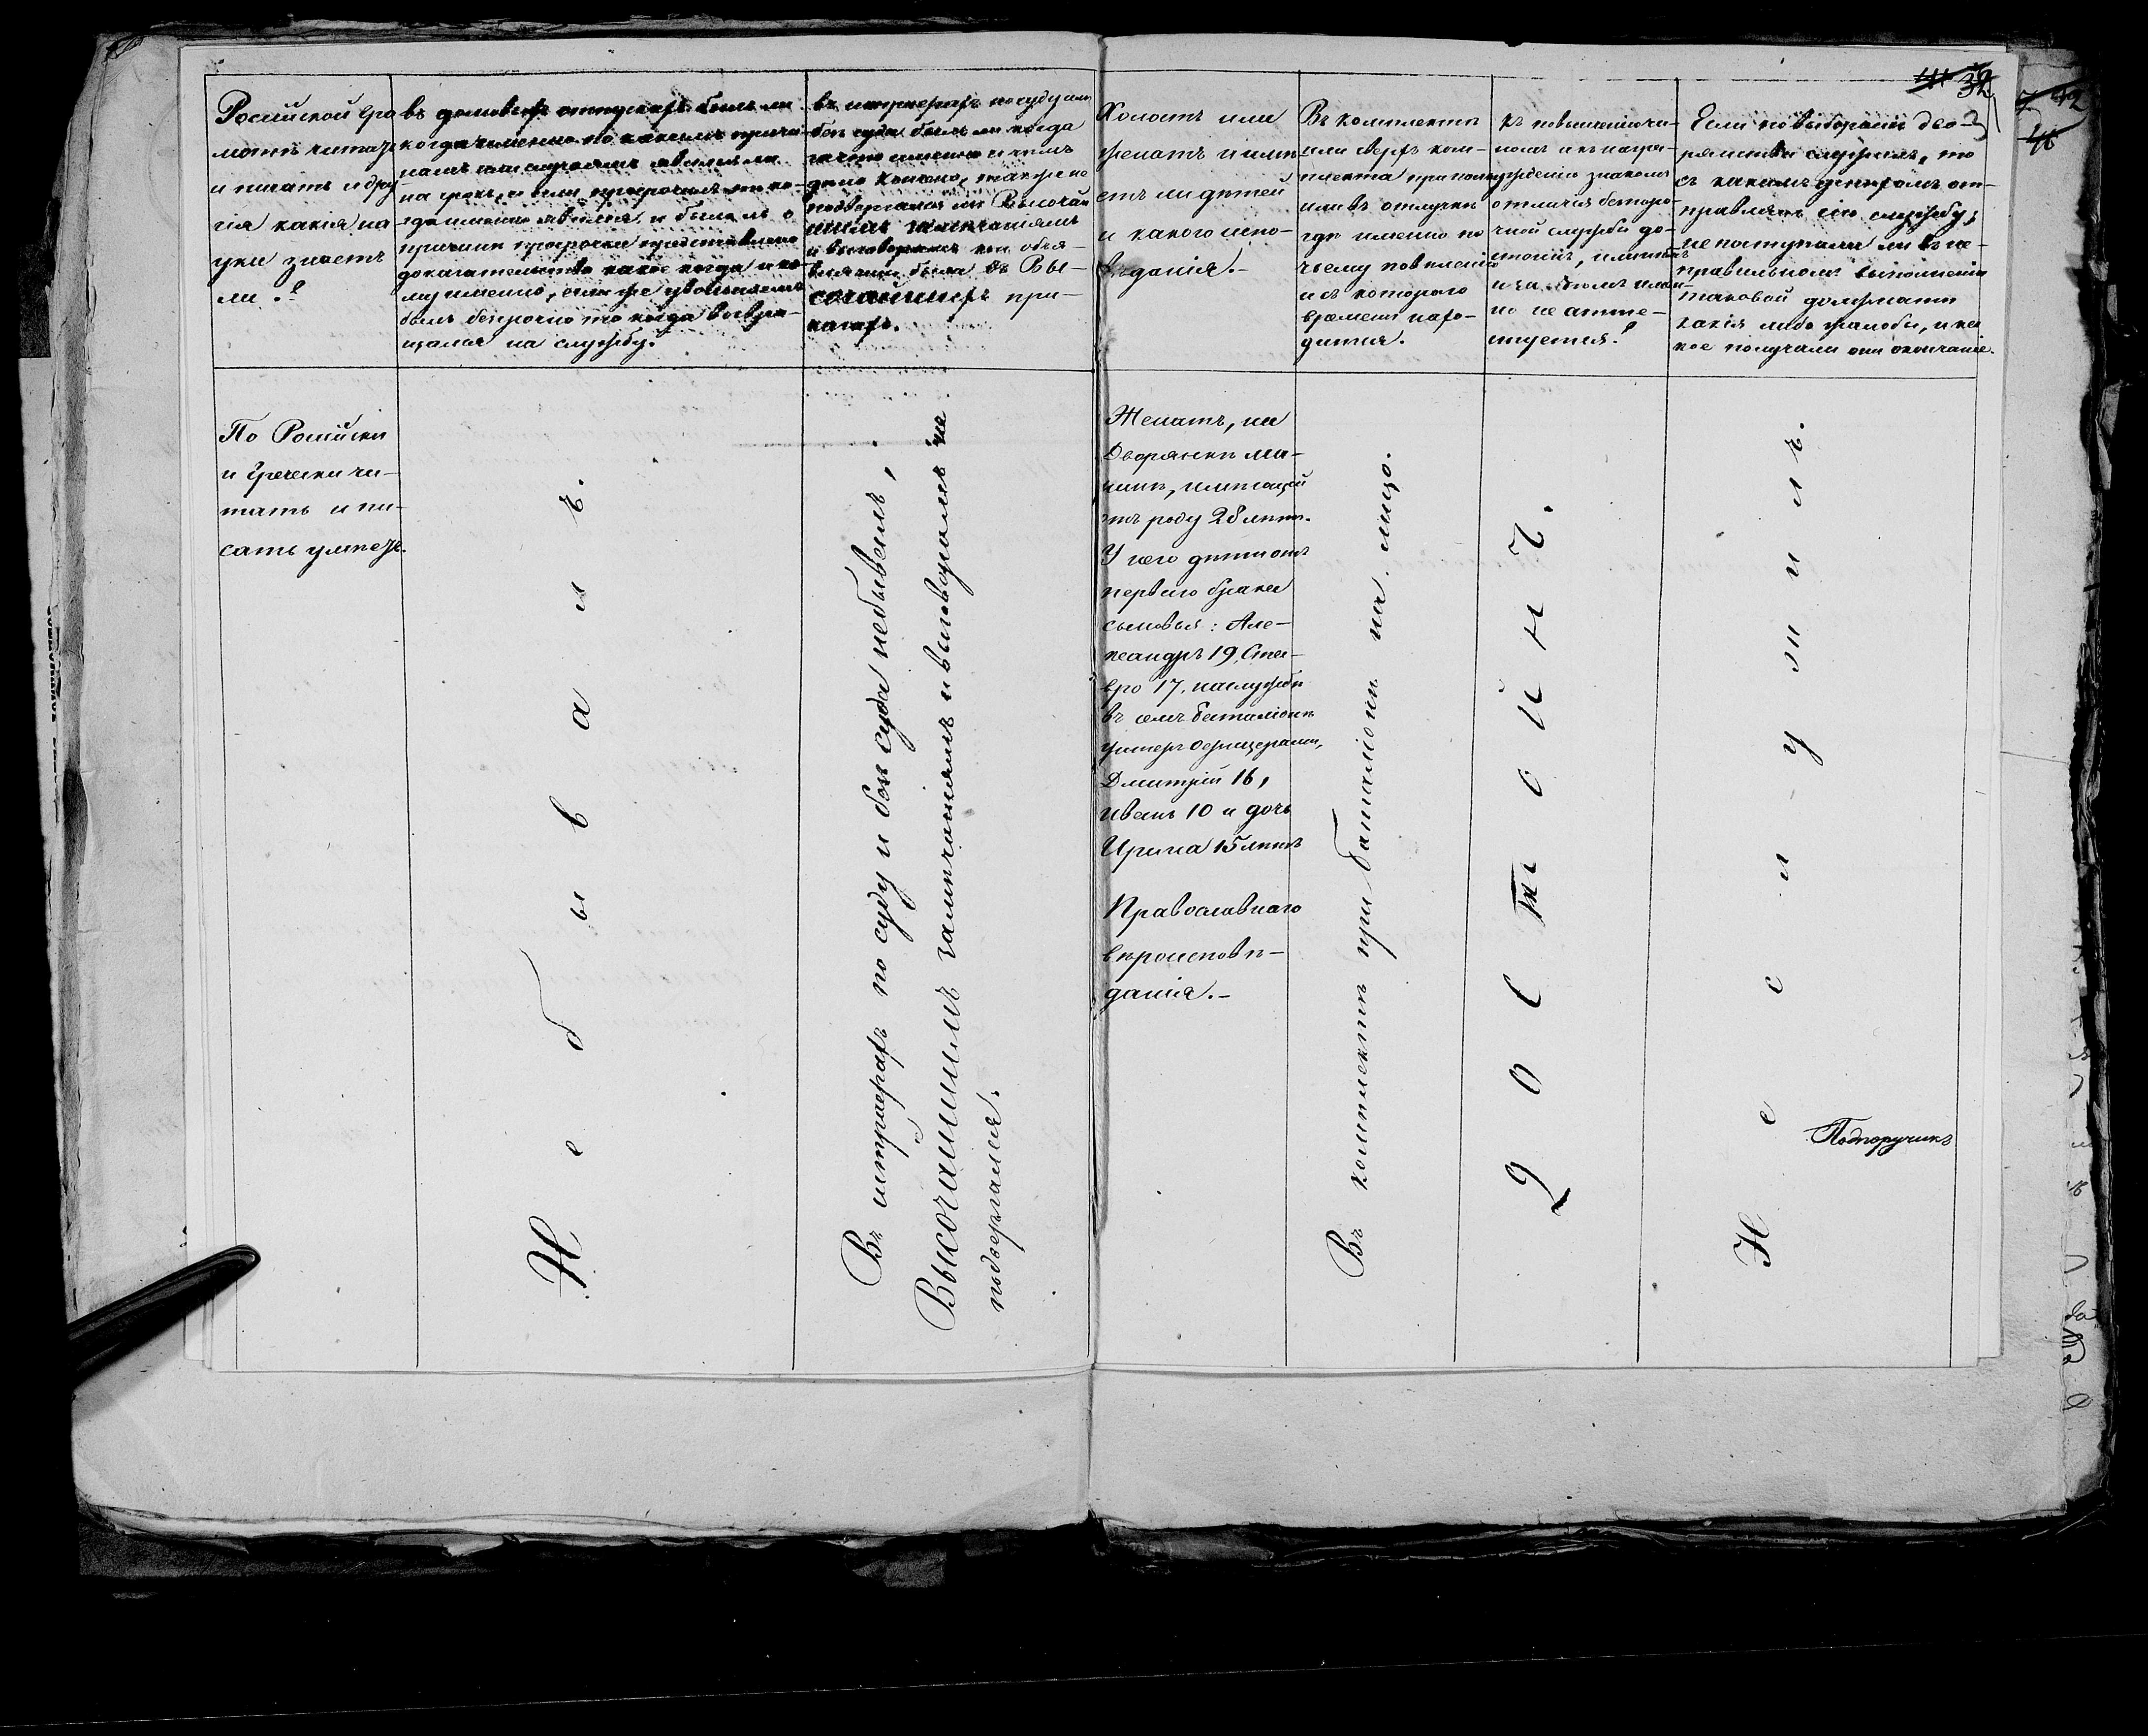 32
Росийской гра
мотѣ читать
и писать и дру
гія какія на
уки знаетъ
ли?
въ домовыхъ отпускахъ былъ ли
когда именно по какимъ причи
намъ или случаямъ явился ли
на срокъ, и если просрочилъ то ко-
гда именно явился и было ль о
причинѣ просрочки представлено
доказательство какое когда и ко-
му именно, если же увольняемъ
былъ безсрочно то когда возвра-
щался на службу.
въ штрафахъ по суду или
безъ суда былъ ли когда
за что именно и чѣмъ
дѣло кончено, также не
подвергался ли Высочай
шимъ замѣчаніямъ
и выговорамъ кои объя-
влены были въ Вы-
сочайшихъ при-
казахъ.
Холостъ или
женатъ и имѣ-
етъ ли дѣтей
и какого испо-
вѣданія.-
Въ комплектѣ
или сверхъ ком-
плекта при полку
или въ отлучкѣ
гдѣ именно по
чьему повелѣнію
и съ котораго
времени нахо-
дится.
къ повышенію чи-
номъ и къ награ-
жденію знакомъ
отличія безпоро-
чной службы до-
стоинъ, или нѣтъ
и за чѣмъ имен-
но не атте-
стуется?
Если по выборамъ дво-
рянства служилъ, то
съ какимъ успѣхомъ от-
правлялъ сію службу;
не поступали ли въ не-
правильномъ выполненіи
таковой должности
какія либо жалобы, и ка
кое получали они окончаніе.
По Росийски
и Гречески чи-
тать и пи-
сать умѣетъ.
Небывалъ.
Въ штрафахъ по суду и безъ суда небывалъ,
Высочайшимъ замѣчаніямъ и выговорамъ не
подвергался.
Женатъ, на
Дворянкѣ
имѣющей
отъ роду 28 лѣтъ.
У него дѣти отъ
перваго брака
сыновья: Але-
ксандръ 19, Ста-
вро 17, на службѣ
въ семъ баталіонѣ
унтеръ офицерами,
Дмитрій 16,
Иванъ 10 и дочь
Ирина 15 лѣтъ
Православнаго
вѣроисповѣ-
данія.-
Въ комплектѣ при баталіонѣ на лицо.
Достоинъ.
Не служилъ.
Подпоручикъ